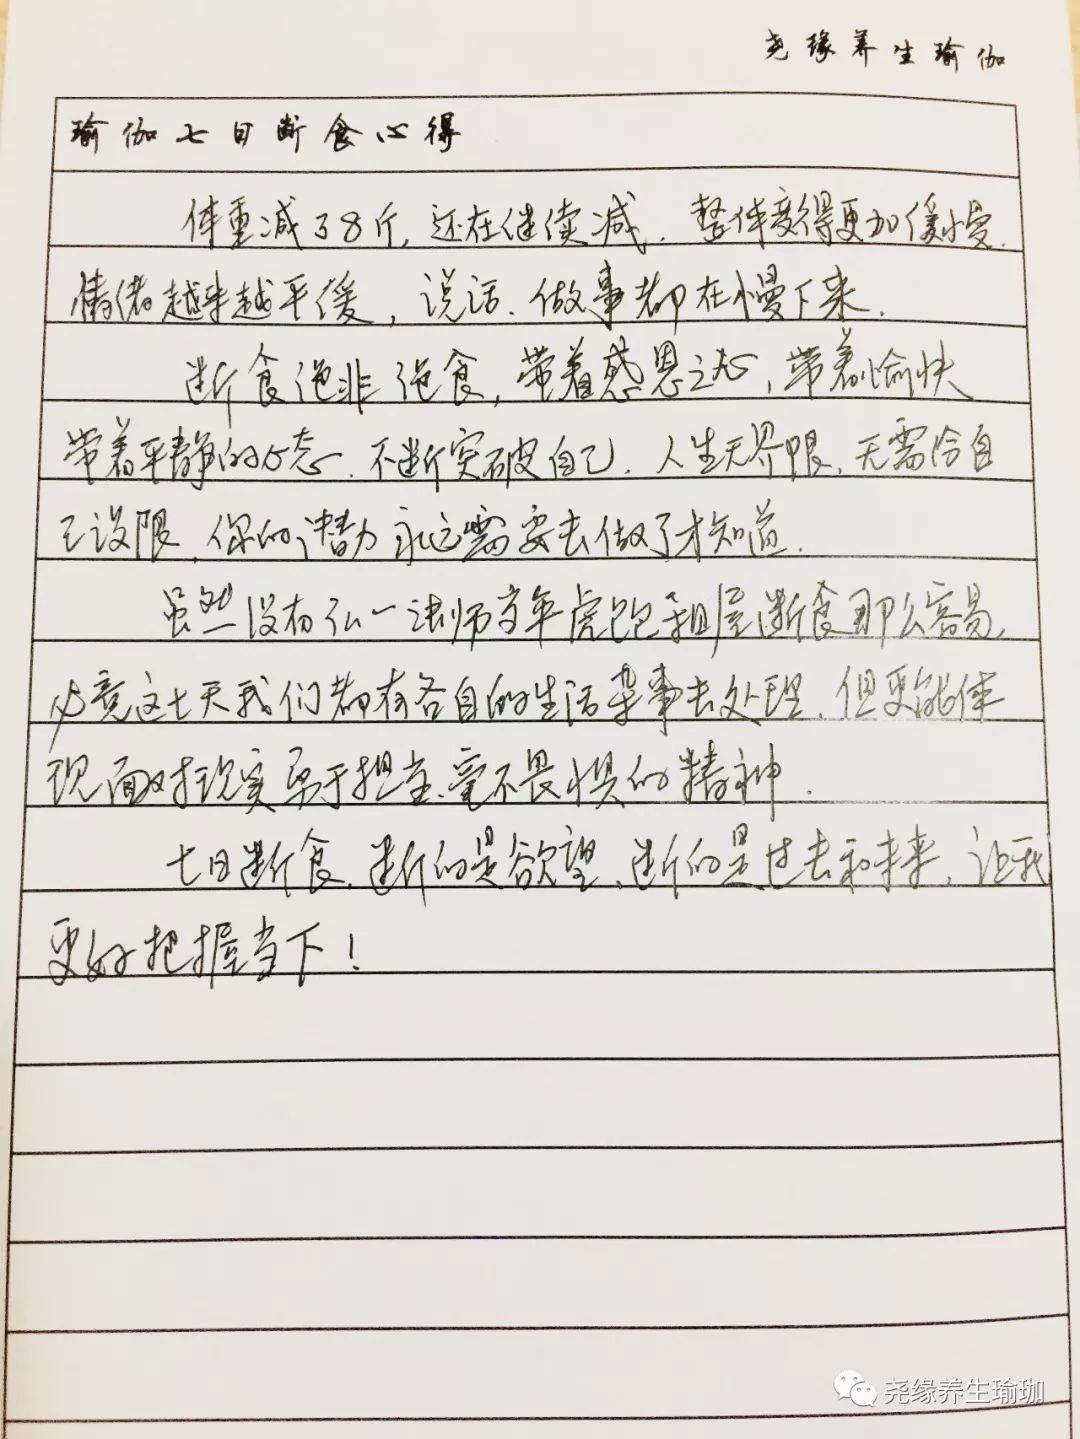 尧缘养生瑜伽
瑜伽七日断食心得
体重减了8斤,还在继续减.整体变得更加缓慢.
情绪越来越平缓,说话.做事都在慢下来.
断食绝非绝食,带着感恩之心,带着愉快
带着平静的心态.不断突破自己.人生无界限,无需给自
己设限,你的潜力永远需要去做了才知道.
虽然没有弘一法师当年虎跑租屋断食那么容易,
必竟这七天我们都有各自的生活杂事去处理,但更能体
现面对现实勇于担当、毫不畏惧的精神.
七日断食,断的是欲望、断的是过去和未来,让我
更好把握当下!
尧缘养生瑜珈